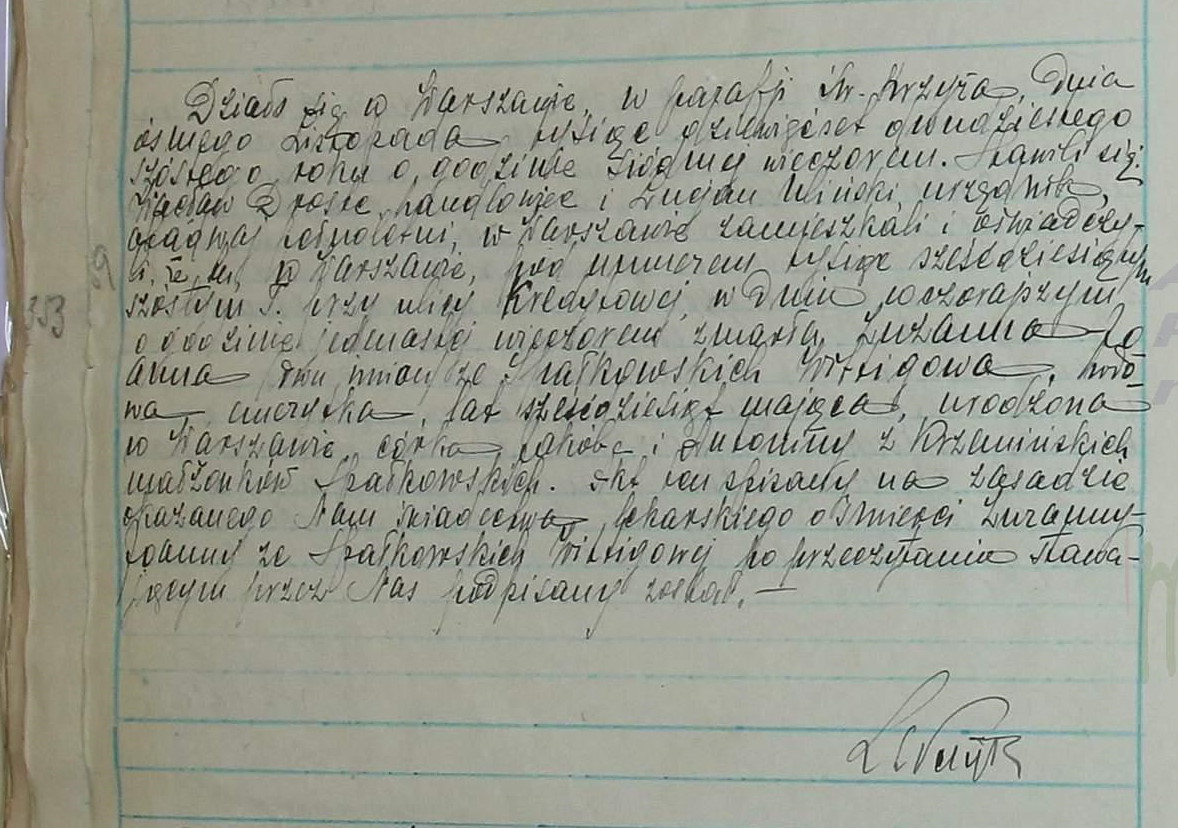 Działo się w Warszawie, w parafji Św. Krzyża, dnia
ósmego Listopada tysiąc dziewięćset dwudziestego
szóstego roku o godzinie siódmej wieczorem. Stawili się:
Wacław Drosse, handlowiec i Lucjan Wiński, urzędnik,
obadwaj pełnoletni, w Warszawie zamieszkali i oświadczy-
li, że tu, w Warszawie, pod numerem tysiąc sześćdziesiątym
szóstym J. przy ulicy Kredytowej, w dniu wczorajszym
o godzinie jedenastej wieczorem zmarła Zuzanna Jo
anna dwu imion ze Spałkowskich Wittigowa, wdo-
wa, emerytka, lat sześćdziesiąt mająca, urodzona
w Warszawie, córka Jakóba i Antoniny z Krzemińskich
małżonków Spałkowskich. Akt ten spisany na zasadzie
okazanego Nam świadectwa lekarskiego o śmierci Zuzanny-
Joanny ze Spałkowskich Wittigowej po przeczytaniu stawa-
jącym przez Nas podpisany został. —
353